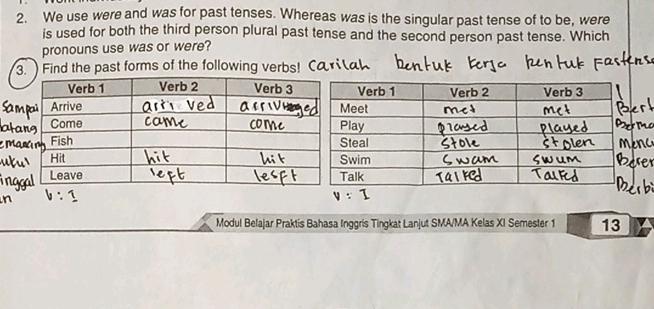 2. We use were and was for past tenses. Whereas was is the singular past tense of to be, were
is used for both the third person plural past tense and the second person past tense. Which
pronouns use was or were?
3. Find the past forms of the following verbs! Carilah bentuk kerja bentuk Fastense
Verb 1 Verb 2 Verb 3
Sampai Arrive arri ved
datang Come came come
Fish
Hit hit hit
inggal Leave left
V : I
Verb 1 Verb 2 Verb 3
Meet met met Bert
Play played Berma
Steal Stole Stolen Menc
Swim Swam Swum Beren
Talk Talked Talked Berbi
V : I
Modul Belajar Praktis Bahasa Inggris Tingkat Lanjut SMA/MA Kelas XI Semester 1 13